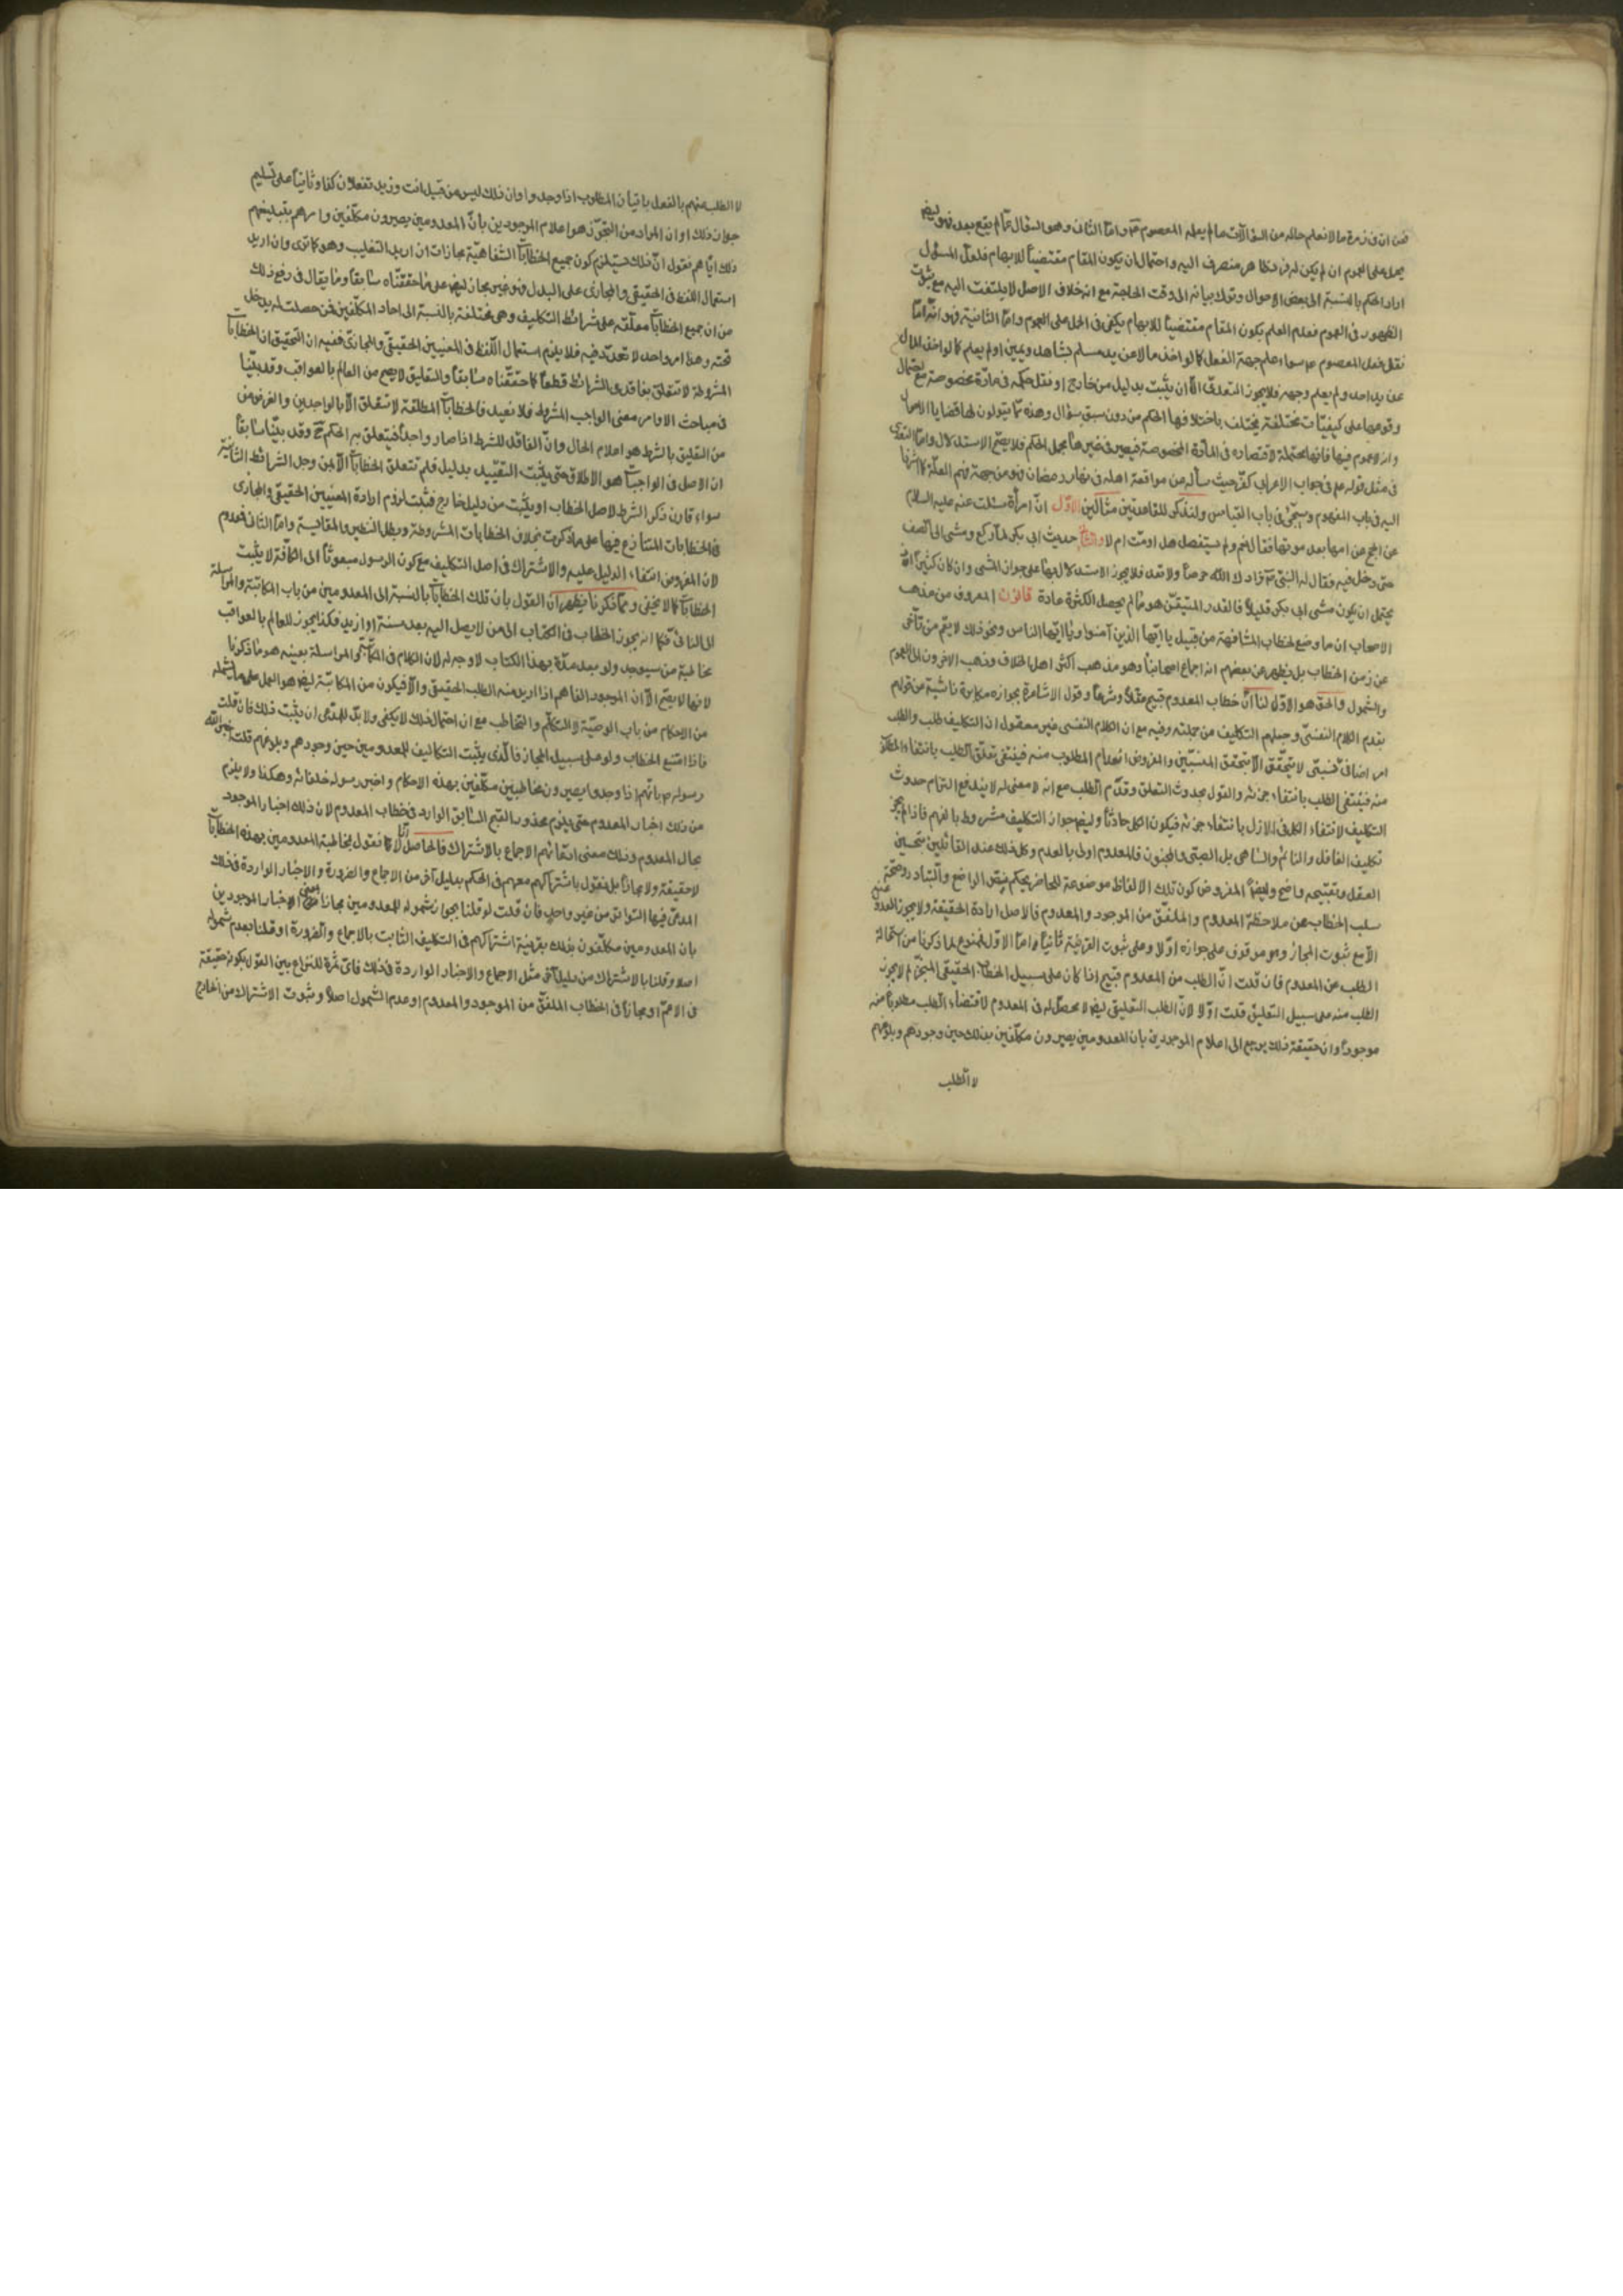 فمن ان في زمرة ما لا نعلم حاله من السؤالات ما لم يعلمه المعصوم واما الثاني وهو السؤال عما لم يقع بعد فهو ايضا
يحمل على العموم ان لم يكن له فرد ظاهر منصرف اليه واحتمال ان يكون المقام مقتضيا للابهام فلعل المسؤل
اراد الحكم بالنسبة الى بعض الاحوال وترك بيانه الى وقت الحاجة مع انه خلاف الاصل لا يلتفت اليه مع ثبوت
الظهور في العموم فعدم العلم بكون المقام مقتضيا للابهام يكفي في الحمل على العموم واما الثانية فهو انه اما
نقل فعل المعصوم سواء علم جهة الفعل كما لو اخذ مالا من يد مسلم بشاهد ويمين او لم يعلم كما لو اخذ المال
عن يد احد ولم يعلم وجهه فلا يجوز التعدي الا ان يثبت بدليل من خارج او نقل حكمه في مادة مخصوصة مع احتمال
وقوعها على كيفيات مختلفة يختلف باختلافها الحكم من دون سبق سؤال وهذه مما يقولون لها قضايا الاحوال
وانه لا عموم فيها فانها محتملة لاقتصاره في المادة المخصوصة فيصير في غيرها مجمل الحكم فلا يصح الاستدلال واما التعدي
في مثل قوله في جواب الاعرابي كفر حيث سأله عن مواقعة اهله في نهار رمضان فهو من جهة فهم العلة كما اشرنا
اليه في باب المفهوم وسيجئ في باب القياس ولنذكر للقاعدتين مثالين الاول ان امرأة سئلت عنه عليه السلام
عن الحج عن امها بعد موتها فقال نعم ولم يستفصل هل اوصت ام لا والثاني حديث ابي بكر لما ركع ومشى الى الصف
حتى دخل فيه فقال له النبي زادك الله حرصا ولا تعد فلا يجوز الاستدلال بها على جواز المشي وان كان كثيرا اذ
يحتمل ان يكون مشى ابي بكر قليلا فالقدر المتيقن هو ما لم يحصل الكثرة عادة قانون المعروف من مذهب
الاصحاب ان ما وضع لخطاب المشافهة من قبيل يا ايها الذين آمنوا ويا ايها الناس ونحو ذلك لا يعم من تأخر
عن زمن الخطاب بل يظهر عن بعضهم انه اجماع اصحابنا وهو مذهب اكثر اهل الخلاف وذهب الاخرون الى العموم
والشمول والحق هو الاول لنا ان خطاب المعدوم قبيح عقلا وشرعا وقول الاشاعرة بجوازه مكابرة ناشية من قولهم
بقدم الكلام النفسي وجعلهم التكليف من جملته وفيه مع ان الكلام النفسي غير معقول ان التكليف طلب والطلب
امر اضافي نسبي لا يتحقق الا بتحقق المنتسبين والمفروض انعدام المطلوب منه فينتفي تعلق الطلب بانتفاء المطلوب
منه فينتفي الطلب بانتفاء جزئه والقول بحدوث التعلق وقدم الطلب مع انه لا معنى له لا يندفع التزام حدوث
التكليف لانتفاء الكل في الازل بانتفاء جزئه فيكون الكل حادثا وايضا جواز التكليف مشروط بالفهم فاذا لم يجز
تكليف الغافل والنائم والساهي بل الصبي والمجنون فالمعدوم اولى بالعدم وكل ذلك عند القائلين بتحسين
العقل وتقبيحه واضح وايضا المفروض كون تلك الالفاظ موضوعة للحاضر بحكم نص الواضع والتبادر وصحة
سلب الخطاب عن ملاحظة المعدوم والملفق من الموجود والمعدوم فالاصل ارادة الحقيقة ولا يجوز العدول عنه
الا مع ثبوت المجاز وهو موقوف على جوازه اولا وعلى ثبوت القرينة ثانيا واما الاول فممنوع لما ذكرنا من استحالة
الطلب عن المعدوم فان قلت ان الطلب من المعدوم قبيح اذا كان على سبيل الخطاب الحقيقي المنجز لم لا يجوز
الطلب منه على سبيل التعليق قلت اولا لان الطلب التعليقي ايضا لا محصل له في المعدوم لاقتضاء الطلب مطلوبا منه
موجودا وان حقيقة ذلك يرجع الى اعلام الموجودين بان المعدومين يصيرون مكلفين بذلك حين وجودهم وبلوغهم
لا الطلب
لا الطلب منهم بالفعل باتيان المطلوب اذا وجدوا وان ذلك ليس من قبيل انت وزيد تفعلان كذا وثانيا على تسليم
جواز ذلك او ان المراد من التجوز هو اعلام الموجودين بان المعدومين يصيرون مكلفين وامرهم بتبليغهم
ذلك اياهم نقول ان ذلك يستلزم كون جميع الخطابات الشفاهية مجازات ان اريد التغليب وهو كما ترى وان اريد
استعمال اللفظ في الحقيقي والمجازي على البدل فهو غير مجاز ايضا على ما حققناه سابقا وما يقال في رفع ذلك
من ان جميع الخطابات معلقة على شرائط التكليف وهي مختلفة بالنسبة الى احاد المكلفين فمن حصلت له يدخل
تحته وهذا امر واحد لا تعدد فيه فلا يلزم استعمال اللفظ في المعنيين الحقيقي والمجازي ففيه ان التحقيق ان الخطابات
المشروطة لا تتعلق بفاقدي الشرائط قطعا كما حققناه سابقا والتعليق لا يصح من العالم بالعواقب وقد بينا
في مباحث الاوامر معنى الواجب المشروط فلا نعيد فالخطابات المطلقة لا تتعلق الا بالواجدين والغرض من
من التعليق بالشرط هو اعلام الحال وان الفاقد للشرط اذا صار واجدا فيتعلق به الحكم ح وقد بينا سابقا
ان الاصل في الواجبات هو الاطلاق حتى يثبت التقييد بدليل فلم تتعلق الخطابات الا بمن وجد الشرائط الثابتة
سواء قارن ذكر الشرط لاصل الخطاب او يثبت من دليل خارج فثبت لزوم ارادة المعنيين الحقيقي والمجازي
في الخطابات المتنازع فيها على ما ذكرت بخلاف الخطابات المشروطة وبطل التنظير والمقايسة واما الثاني فمعدوم
لان المفروض انتفاء الدليل عليه والاشتراك في اصل التكليف مع كون الرسول مبعوثا الى الكافة لا يثبت
الخطابات كما لا يخفى ومما ذكرنا يظهر ان القول بان تلك الخطابات بالنسبة الى المعدومين من باب المكاتبة والمراسلة
الى النائي فكما انه يجوز الخطاب في الكتاب الى من لا يصل اليه بعد سنة او ازيد فكذا يجوز للعالم بالعواقب
مخاطبة من سيوجد ولو بعد مدة بهذا الكتاب لا وجه له لان الكلام في المكاتبة والمراسلة بعينه هو ما ذكرنا
لانها لا يصح الا ان الموجود الفاهم اذا اريد منه الطلب الحقيقي والا فيكون من المكاتبة ايضا هو العمل على ما يشمله
من الاحكام من باب الوصية لا التكلم والتخاطب مع ان احتمال ذلك لا يكفي ولا بد للمدعي ان يثبت ذلك فان قلت
فاذا امتنع الخطاب ولو على سبيل المجاز فما الذي يثبت التكاليف للمعدومين حين وجودهم وبلوغهم قلت اخبر الله
رسوله بانهم اذا وجدوا يصيرون مخاطبين مكلفين بهذه الاحكام واخبر رسوله خلفائه وهكذا ولا يلزم
من ذلك اخبار المعدوم حتى يلزم محذور القبح السابق الوارد في خطاب المعدوم لان ذلك اخبار الموجود
بحال المعدوم وذلك معنى اتفاقهم الاجماع بالاشتراك فالحاصل انا لا نقول بمخاطبة المعدومين بهذه الخطابات
لا حقيقة ولا مجازا بل نقول باشتراكهم معهم في الحكم بدليل آخر من الاجماع والضرورة والاخبار الواردة في ذلك
المدعى فيها التواتر من غير واحد فان قلت لو قلنا بجواز شموله للمعدومين مجازا بمعنى الاخبار الموجودين
بان المعدومين مكلفون بذلك بقرينة اشتراكهم في التكليف الثابت بالاجماع والضرورة او قلنا بعدم شموله
اصلا وقلنا بالاشتراك من دليل آخر مثل الاجماع والاخبار الواردة في ذلك فاي ثمرة للنزاع بين القول بكونه حقيقة
في الاعم او مجازا في الخطاب الملفق من الموجود والمعدوم او عدم الشمول اصلا وثبوت الاشتراك من الخارج